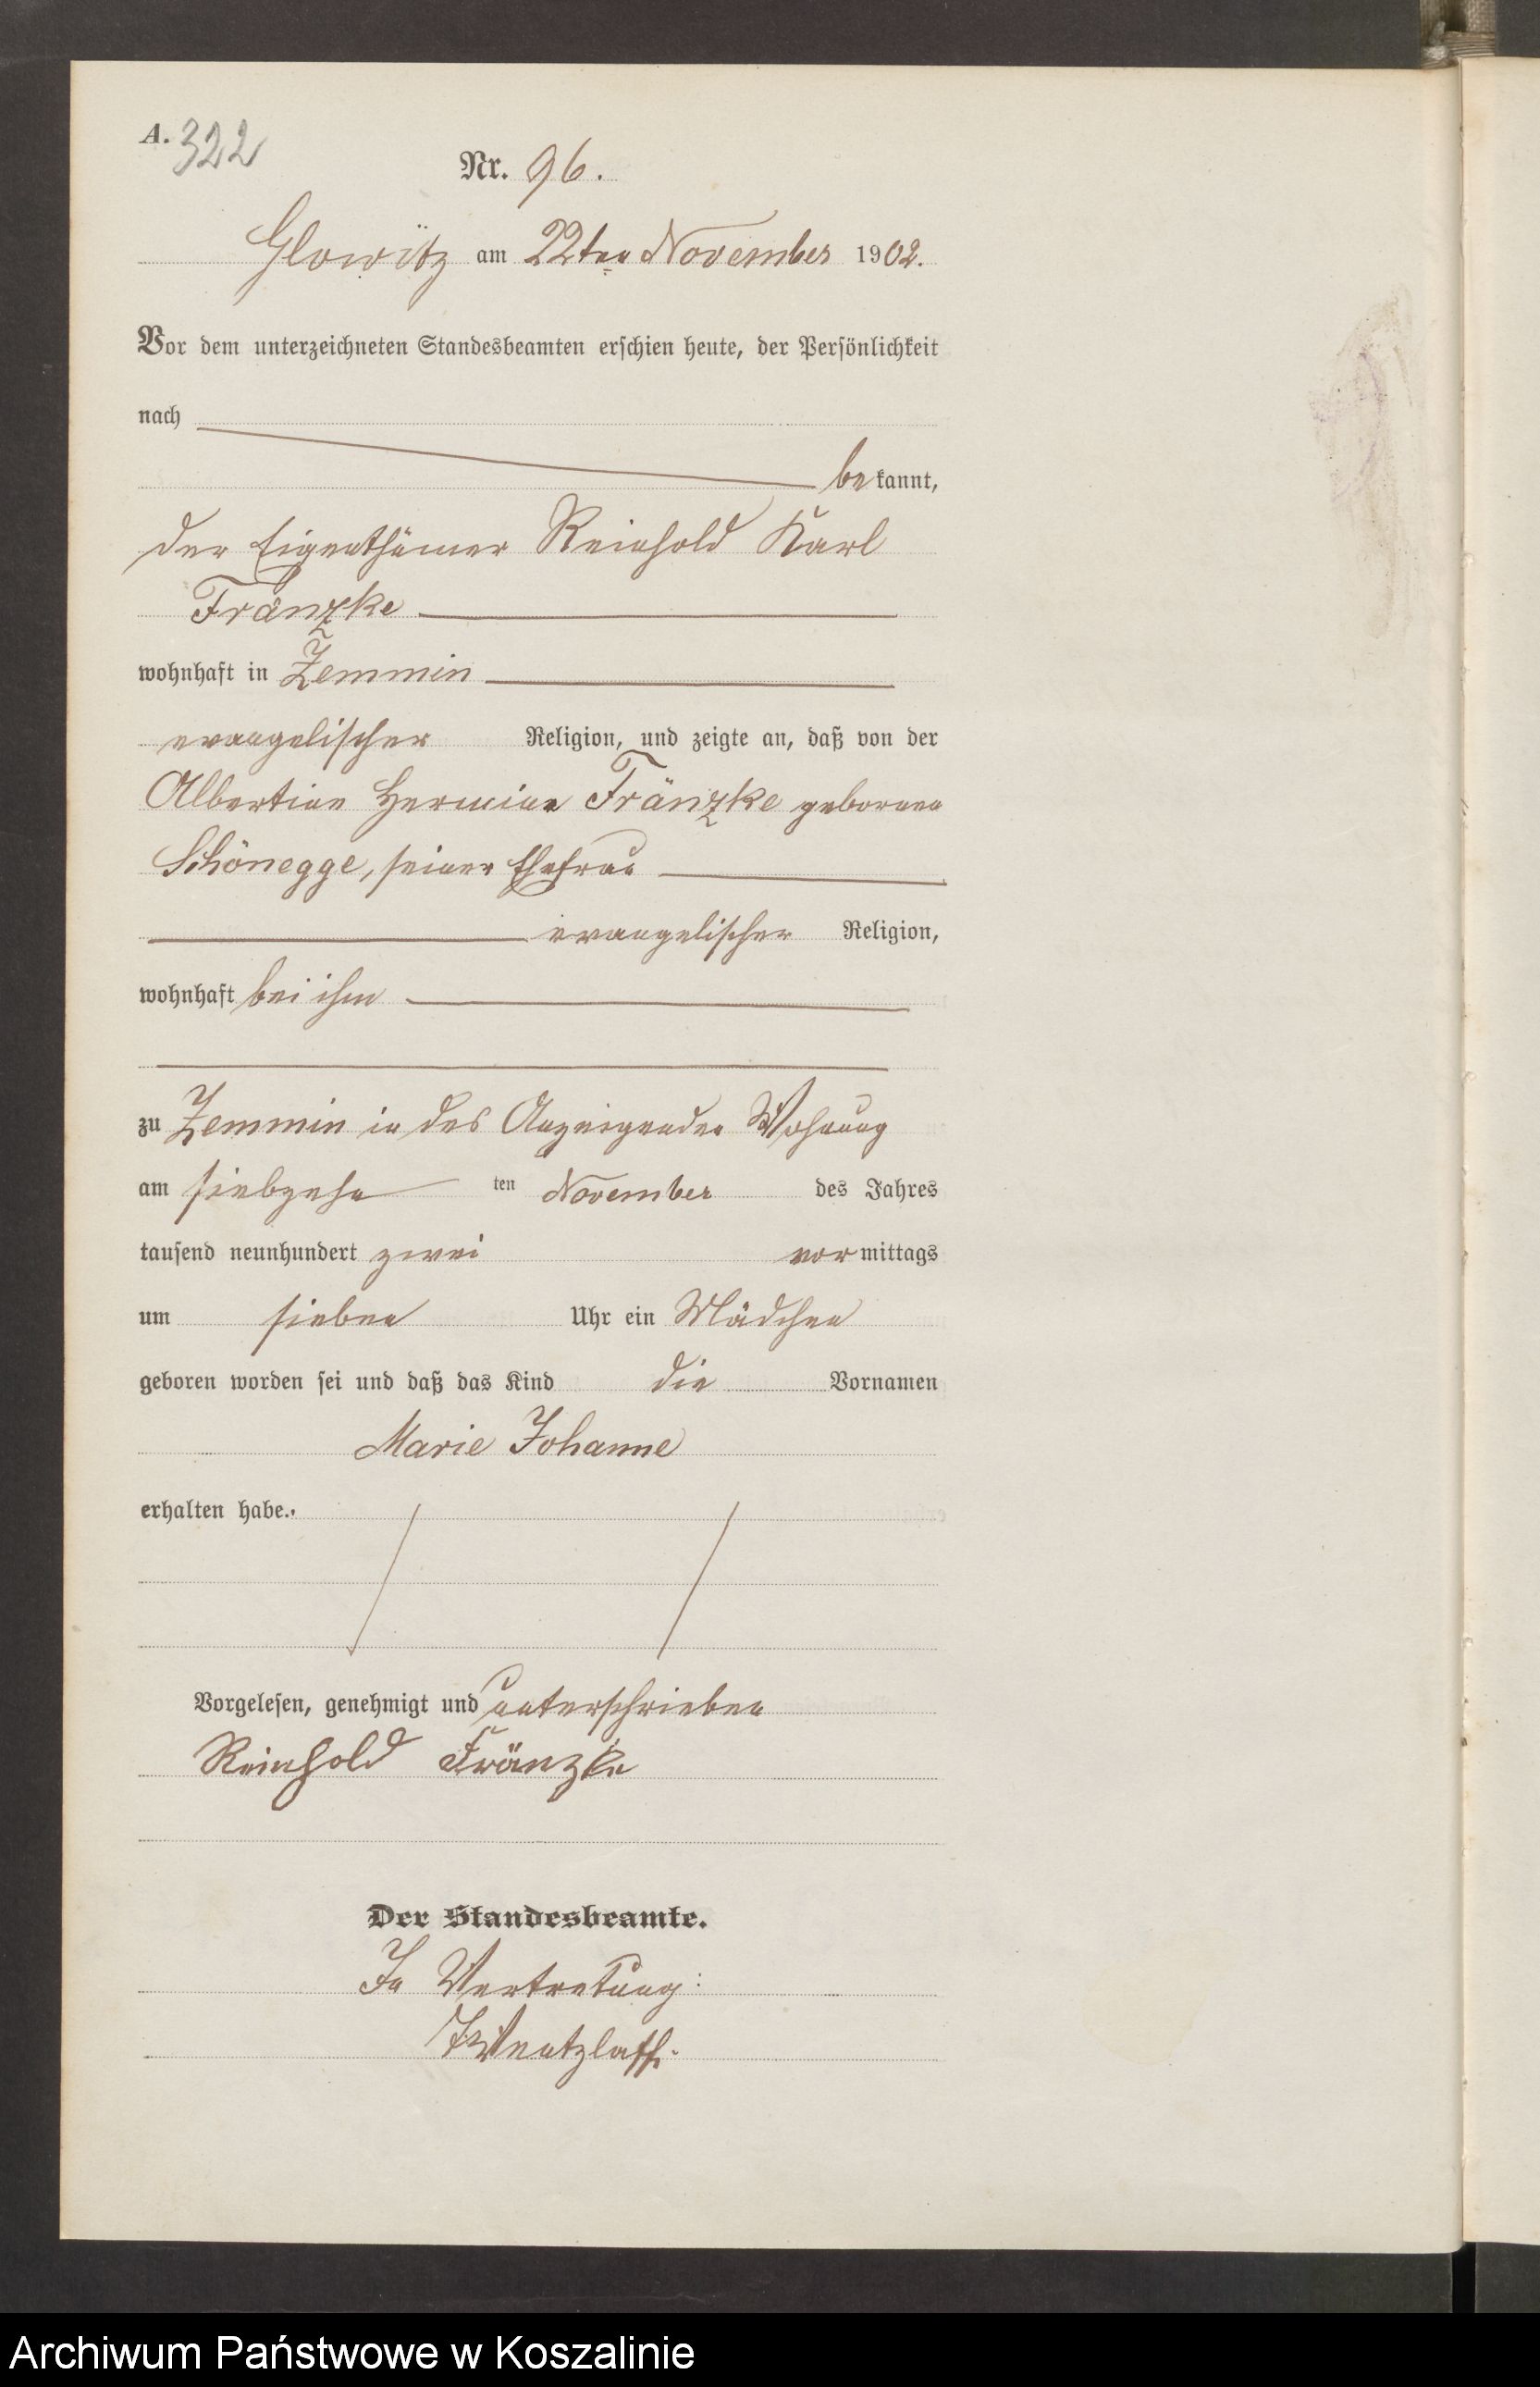 A. 322
Nr. 96.
Glowitz am 22ten November 1902.
Vor dem unterzeichneten Standesbeamten erschien heute, der Persönlichkeit
nach
bekannt,
der Eigenthümer Reinhold Karl
Fränzke
wohnhaft in Zemmin
evangelischer Religion, und zeigte an, daß von der
Albertine Hermine Fränzke geborenen
Schönegge, seiner Ehefrau
evangelischer Religion,
wohnhaft bei ihm
zu Zemmin in des Anzeigenden Wohnung
am siebzehn ten November des Jahres
tausend neunhundert zwei vormittags
um sieben Uhr ein Mädchen
geboren worden sei und daß das Kind die Vornamen
Marie Johanne
erhalten habe.
Vorgelesen, genehmigt und unterschrieben
Reinhold Fränzke
Der Standesbeamte.
In Vertretung:
Wentzlaff.
Archiwum Państwowe w Koszalinie